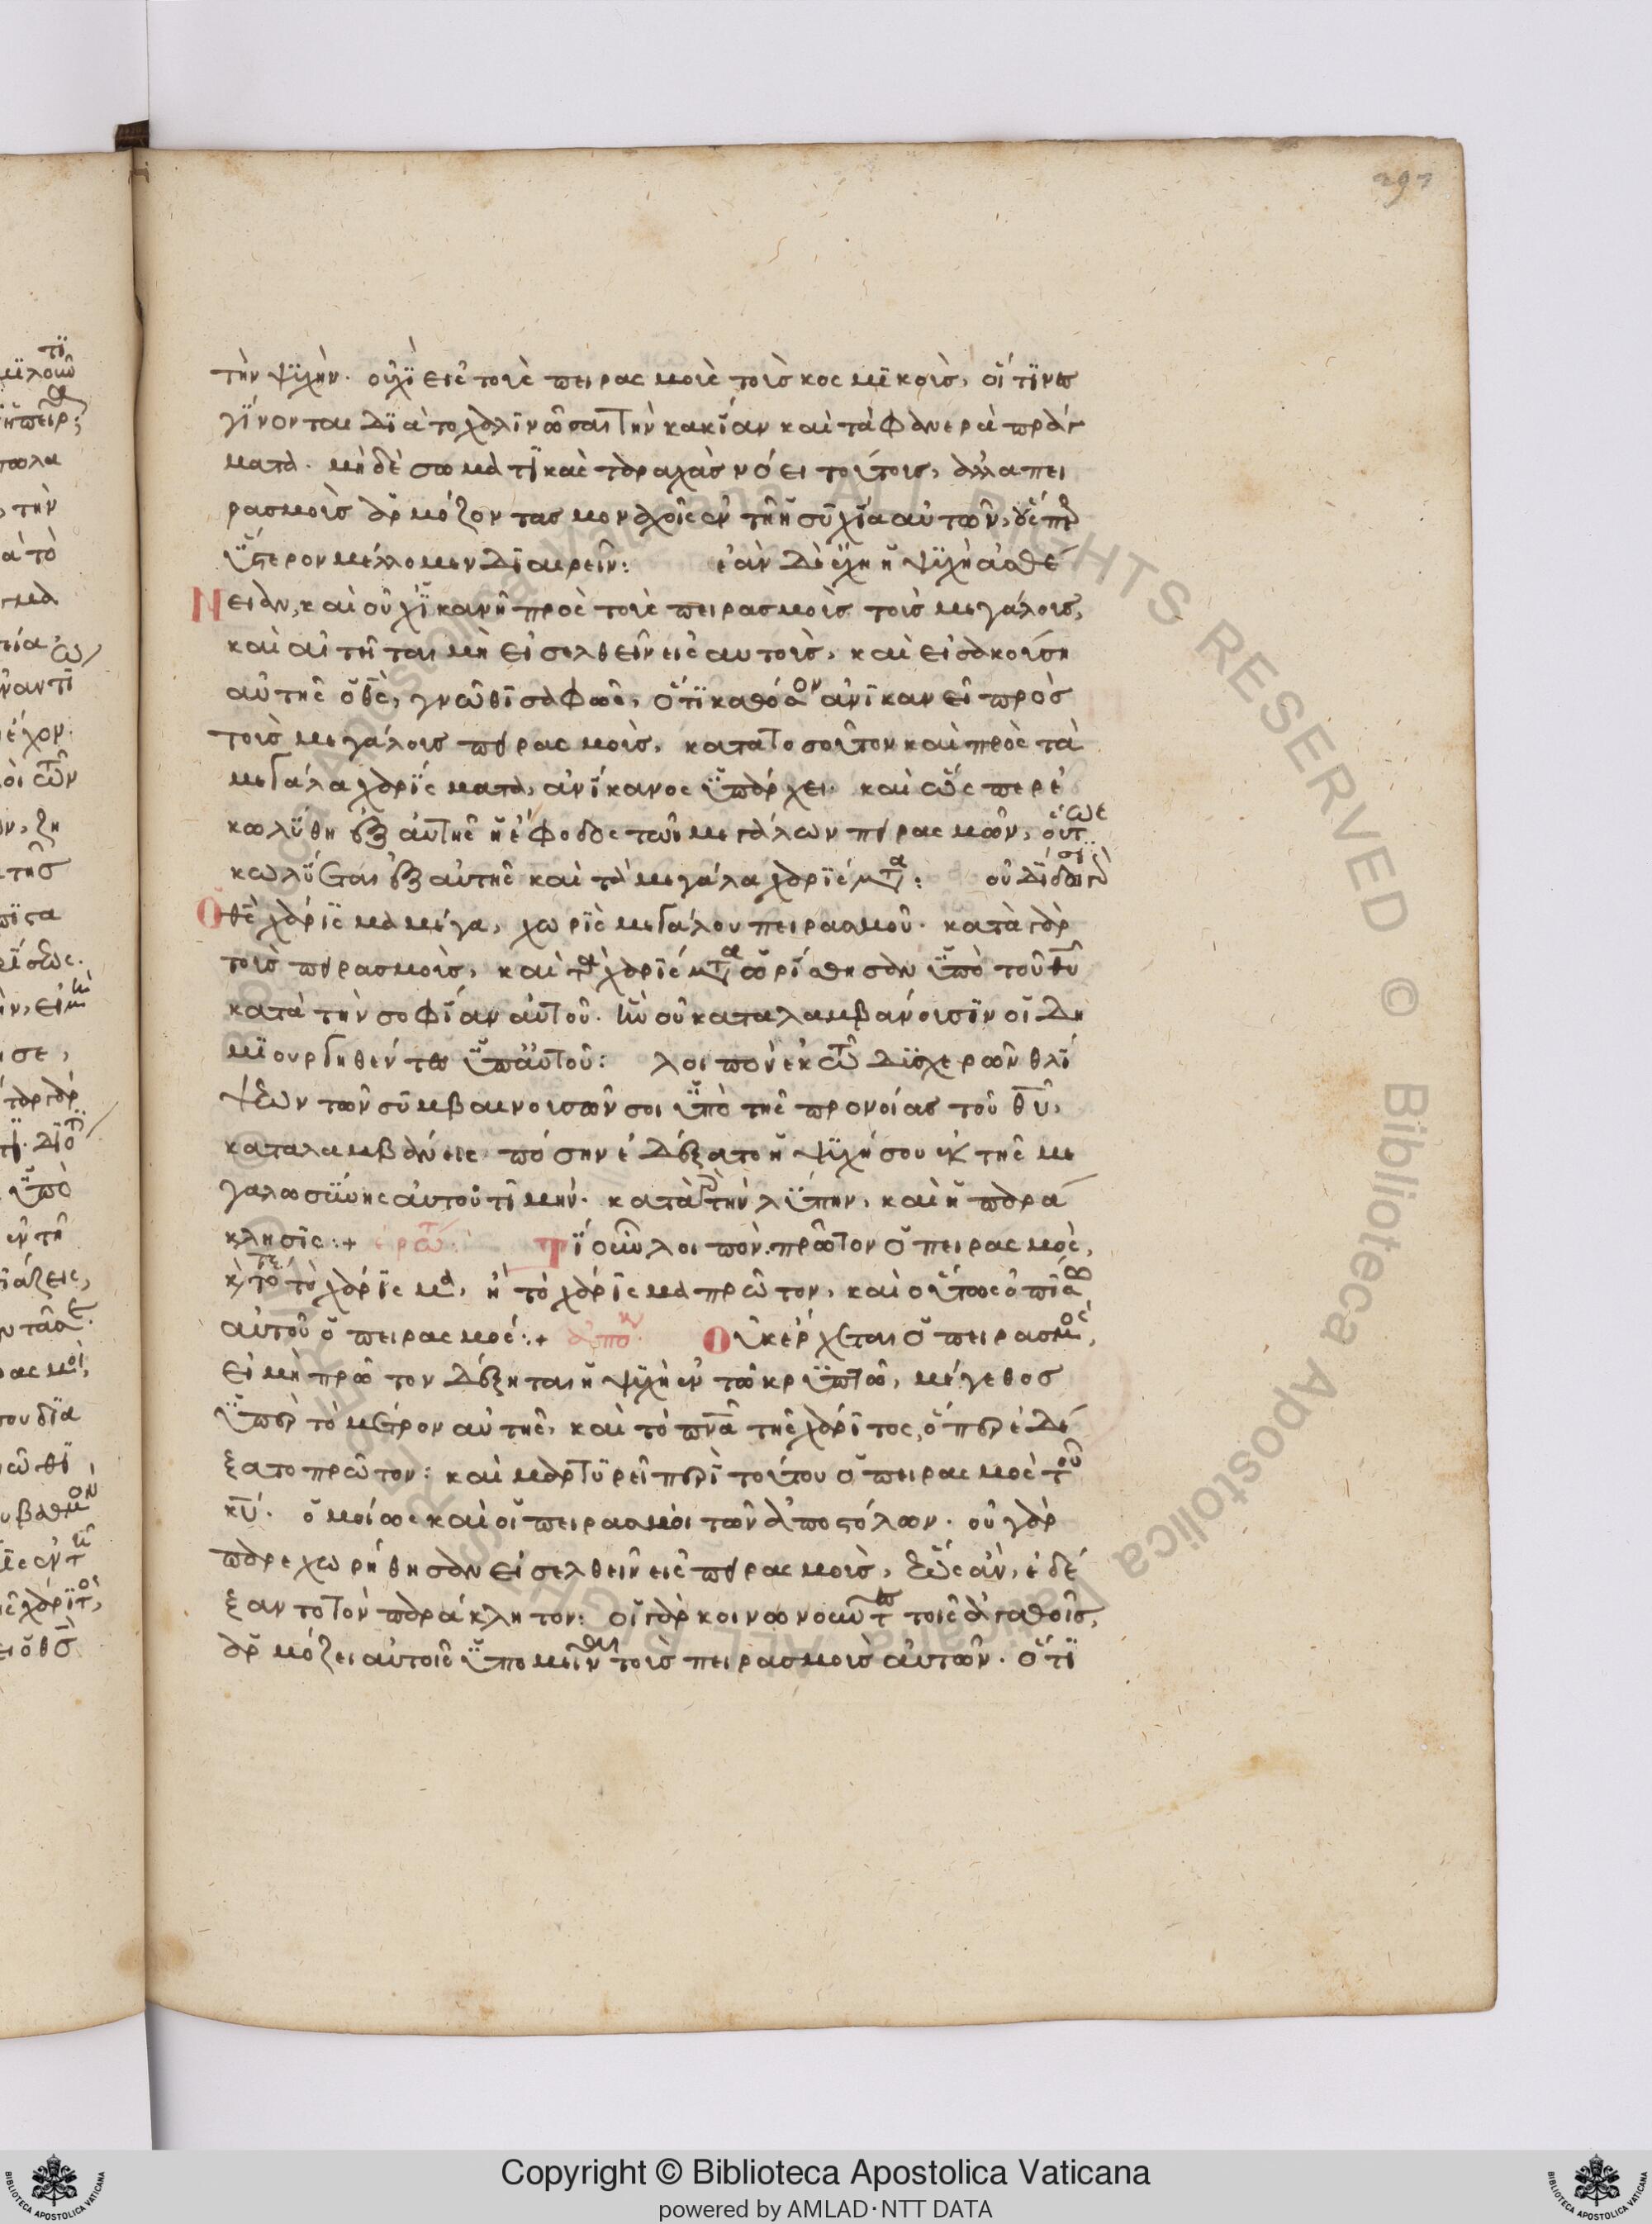 297
τὴν ψϊχὴν. οὐχῒ εἰς τοὺς πειρασμοὺς τοὺς κοσμϊκοὺς, οἵ τϊνες
γΐνονται δϊὰ τὸ χαλϊνῶσαι τὴν κακΐαν καὶ τὰ φανερὰ πράγ
ματα. μὴδὲ σωματϊκὰς ταραχὰς νόει τούτους, ἀλλα πει
ρασμοὺς ἁρμόζοντας μοναχοῖς ἐν τῇ ἡσϋχΐα αὐτῶν,
ὕστερον μέλλομεν δϊαιρεῖν: ἐὰν δὲ ἡ ψϊχὴ ἀσθέ
Νει ἂν, καὶ οὐχ ϊκανὴ πρὸς τοὺς πειρασμοὺς τοὺς μεγάλους,
καὶ αἰτεῖται μὴ εἰσελθεῖν εἰς αυτοὺς, καὶ εἰσακούσῃ
αὐτῆς ὁ θς, γνῶθϊ σαφῶς, ὅτϊ καθόσον ἀνϊκανεῖ πρὸς
τοὺς μεγάλους πειρασμοὺς, κατατοσοῦτον καὶ πρὸς τὰ
μεγάλα χαρΐσματα, ἀνΐκανος ὑπάρχει. καὶ ὥσπερ ἐ
κωλΰθη ἐξ αὐτῆς ἡ ἔφοδος τῶν μεγάλων πειρασμῶν, οὕτως
κωλΰεται ἐξ αὐτῆς καὶ τὰ μεγάλα χαρΐσματα: οὐ δΐδωσϊν
Ο θς χάρϊσμα μέγα, χωρϊς μεγάλου πειρασμοῦ. κατὰ γὰρ
τοὺς πειρασμοὺς, καὶ τὰ χαρΐσματα ὡρΐσθησαν ὑπὸ τοῦ θυ
κατὰ τὴν σοφΐαν αὐτοῦ. ἣν οὐ καταλαμβάνουσϊν οἱ δη
μϊουργηθέντες ὑπαὐτοῦ: λοιπὸν ἐκ τῶν δϋσχερῶν θλΐ
ψεων τῶν σϋμβαινουσῶν σοι ὑπὸ τῆς προνοίας τοῦ θυ,
καταλαμβάνεις πόσην ἐδέξατο ἡ ψϊχή σου ἐκ τῆς με
γαλωσΰνης αὐτοῦ τϊμήν. κατὰ γὰρ τὴν λΰπην, καὶ ἡ παρά
κλησϊς:+ ἐρώτ Τΐ οὖν λοιπὸν. πρῶτον ὁ πειρασμὸς,
καὶ τότε τὸ χάρϊσμα, ἢ τὸ χάρϊσμα πρῶτον, καὶ οὕτως ὀπΐσω
αὐτοῦ ὁ πειρασμός:+ ἀπόκ Οὐκ ἔρχεται ὁ πειρασμὸς,
εἰ μὴ πρῶτον δέξηται ἡ ψϊχὴ ἐν τῶ κρϋπτῶ, μέγεθος
ὑπὲρ τὸ μέτρον αὐτῆς, καὶ τὸ πνα τῆς χάρϊτος, ὅπερ ἐδέ
ξατο πρῶτον: καὶ μαρτϋρεῖ περὶ τούτου ὁ πειρασμὸς τοῦ
κυ. ὁμοίως καὶ οἱ πειρασμοὶ τῶν ἀποστόλων. οὐ γὰρ
παρεχωρήθησαν εἰσελθεῖν εἰς πειρασμοὺς, ἕως ἂν, ἐδέ
ξαντο τὸν παράκλητον: οἱ γὰρ κοινωνοῦντες τοῖς ἀγαθοῖς,
ἁρμόζει αὐτοῖς ὑπομεῖναι τοὺς πειρασμοὺς αὐτῶν. ὅτϊ
Copyright © Biblioteca Apostolica Vaticana
powered by AMLAD·NTT DATA